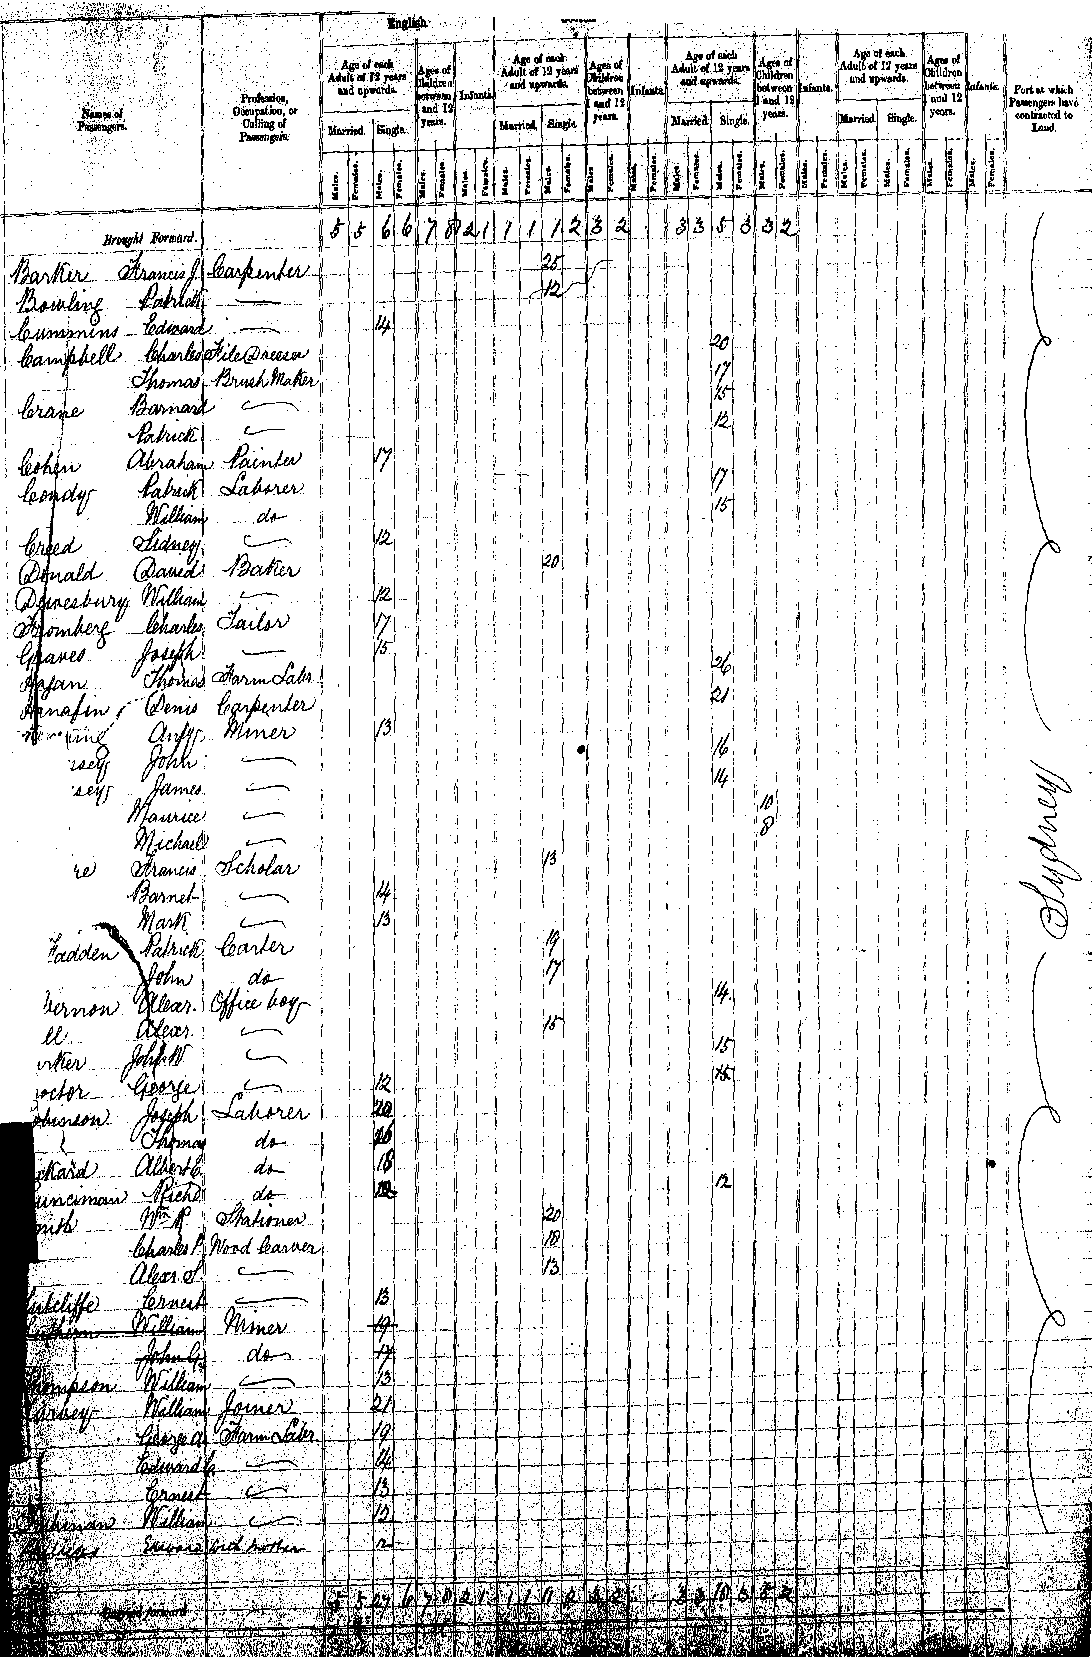 English
Names of Passengers.
Profession, Occupation, or Calling of Passengers.
Age of each Adult of 12 years and upwards. Ages of Children between 1 and 12 years. Infants. Age of each Adult of 12 years and upwards. Ages of Children between 1 and 12 years. Infants. Age of each Adult of 12 years and upwards. Ages of Children between 1 and 12 years. Infants. Age of each Adult of 12 years and upwards. Ages of Children between 1 and 12 years. Infants.
Port at which Passengers have contracted to Land.
Married. Single. Married. Single. Married. Single. Married. Single.
Males. Females. Males. Females. Males. Females. Males. Females. Males. Females. Males. Females. Males. Females. Males. Females. Males. Females. Males. Females. Males. Females. Males. Females. Males. Females. Males. Females. Males. Females. Males. Females.
Brought Forward. 5 5 6 6 7 8 2 1 1 1 1 2 3 2 3 3 5 3 3 2
Barker Francis J. Carpenter 25
Bowling Patrick — 12
Cummins Edward — 14
Campbell Charles File Dresser 20
Thomas Brush Maker 17
Crane Barnard — 15
Patrick — 12
Cohen Abraham Painter 17
Condy Patrick Laborer 17
William do 15
Creed Sidney — 12
Donald David Baker 20
Dewesbury William — 12
Fromberg Charles Tailor 17
Graves Joseph — 15
Hagan Thomas Farm Labr 26
Hanafin Denis Carpenter 21
Miner 13
John — 16
James — 14
Maurice — 10
Michael — 8
Francis Scholar 13
Barnet — 14
Mark — 13
Fadden Patrick Carter 19
John do 17
Vernon Alexr. Office boy 14
Alexr. — 15
John W — 15
George — 12
Robinson Joseph Laborer 20
Thomas do
Albert E. do 18
Runciman Richd do 12
Wm R Stationer 20
Charles P. Wood Carver 18
Alexr S. — 13
Sutcliffe Ernest — 13
William Miner 19
John G. do 17
Thompson William — 13
William Joiner 21
George A. Farm Labr 19
Edward — 14
Ernest — 13
William — 12
Sydney
Carried forward 5 5 27 6 7 8 2 1 1 1 11 2 3 2 3 3 18 3 5 2